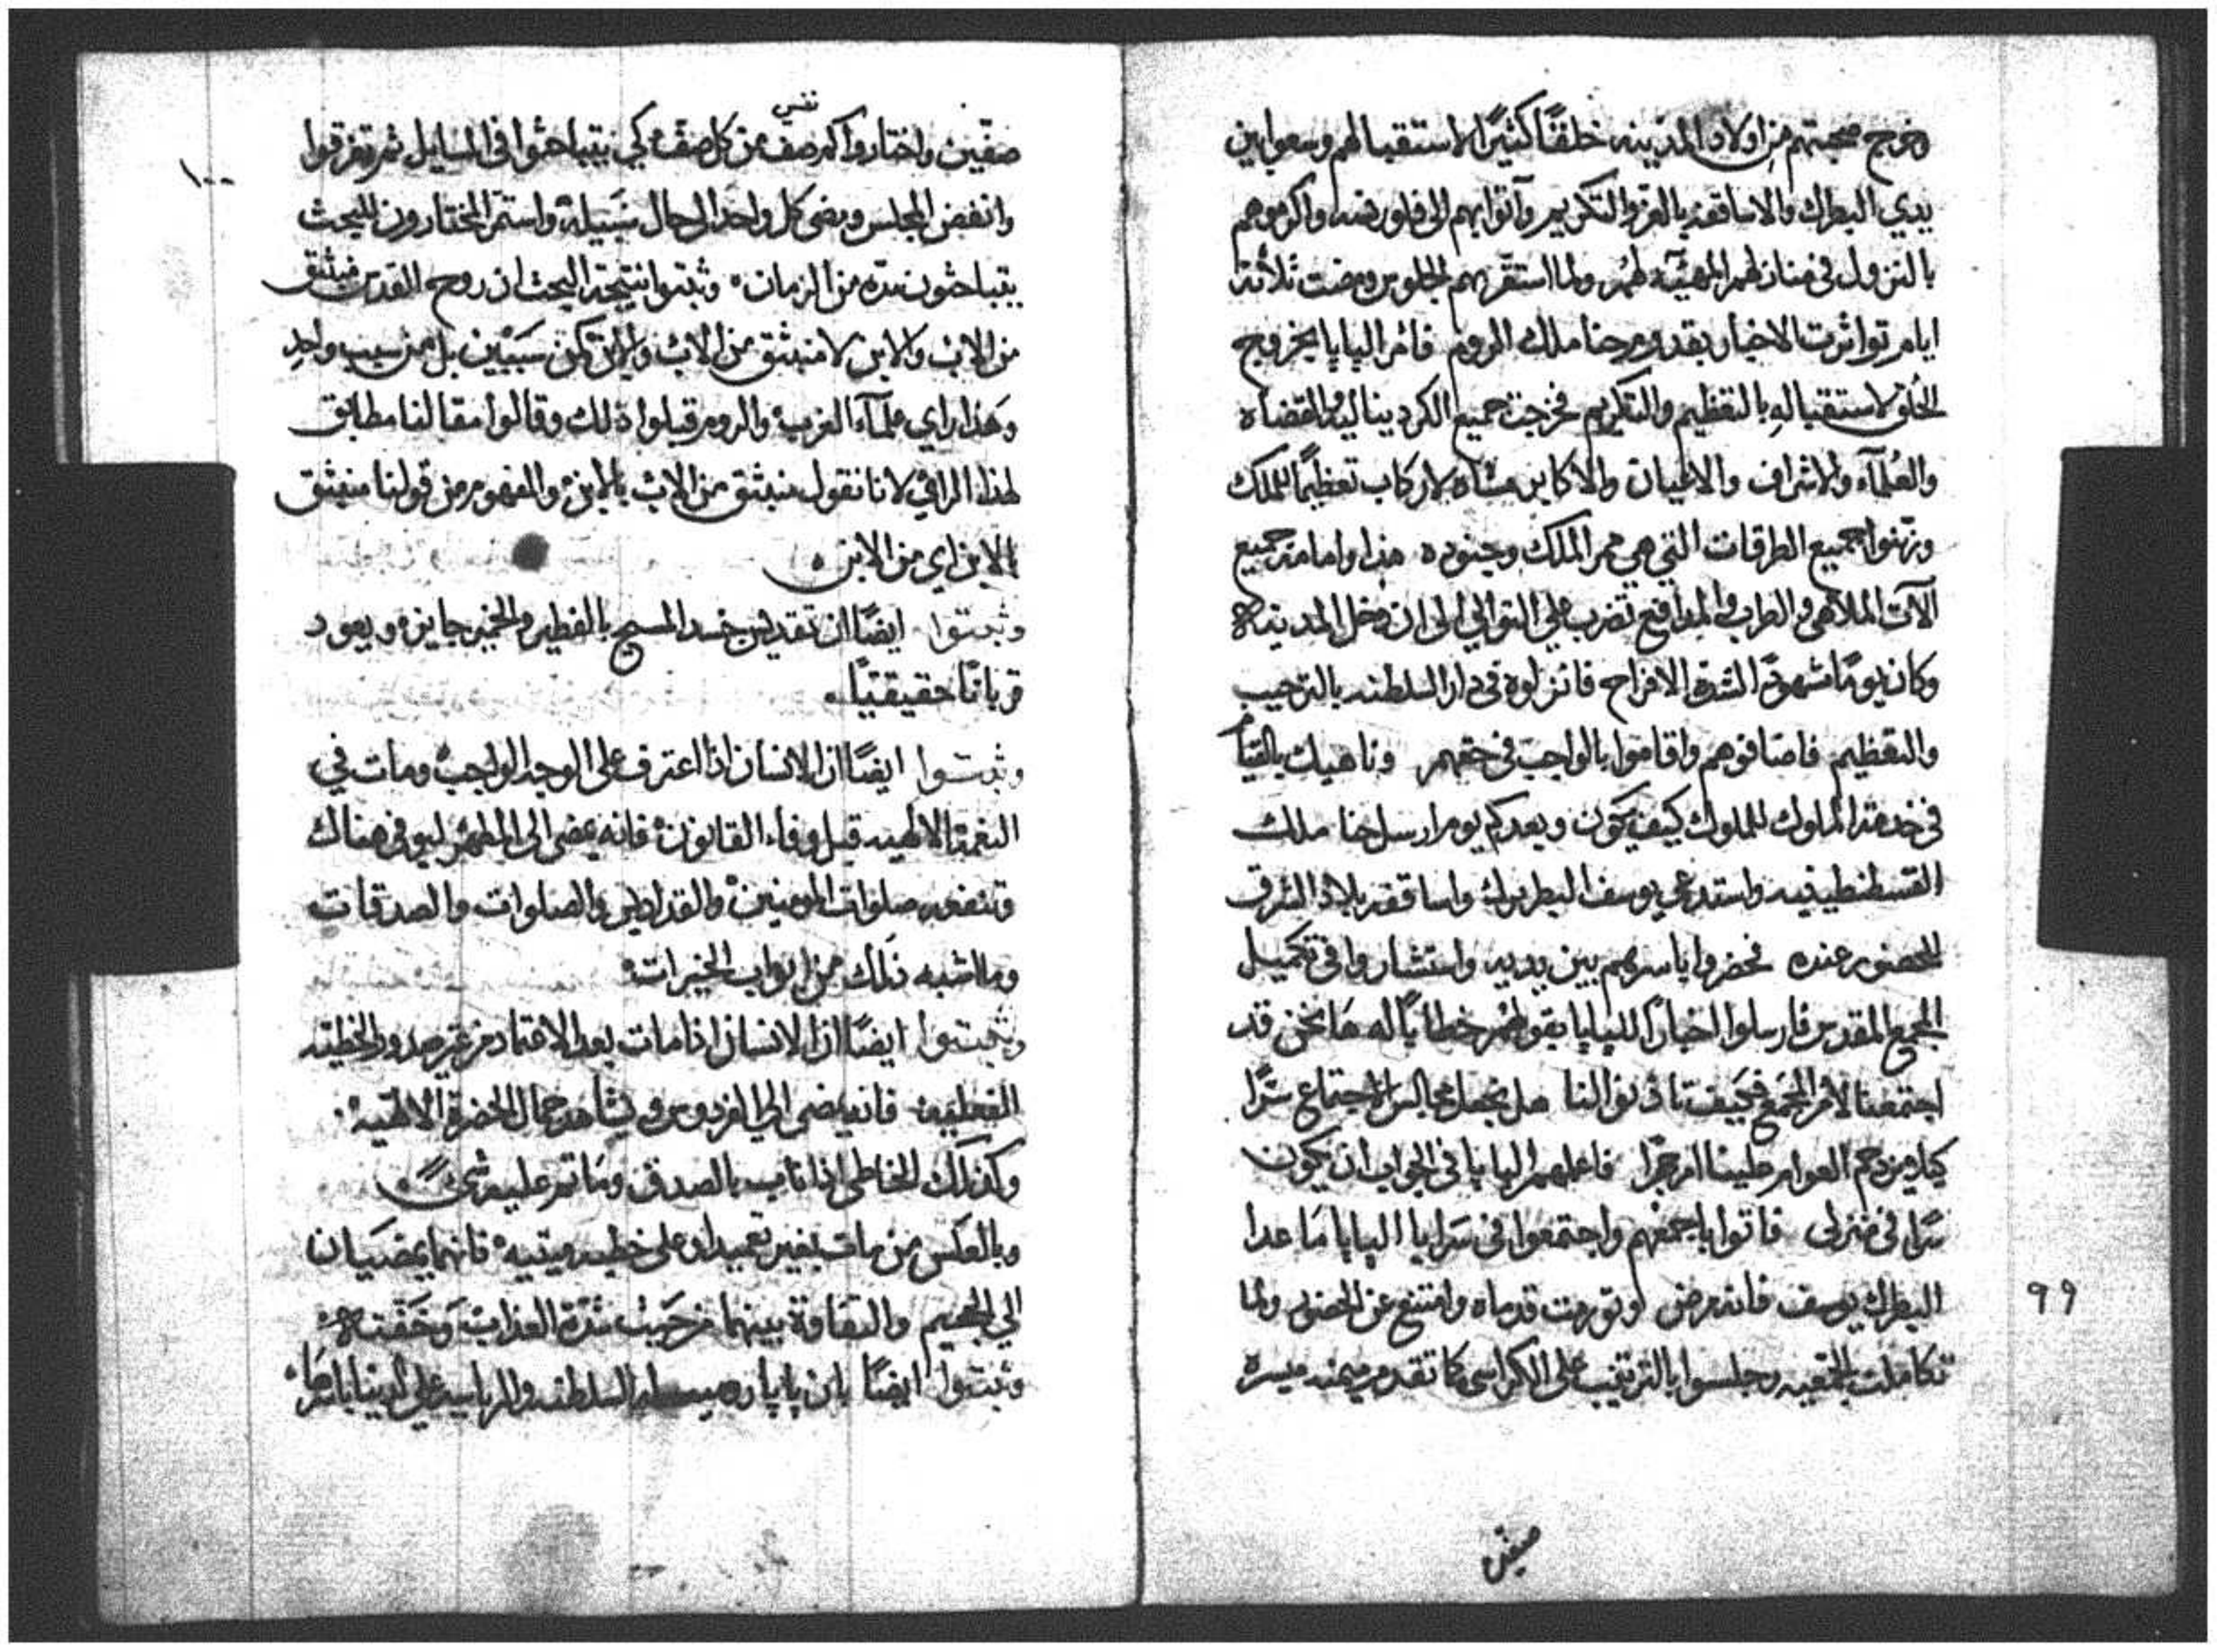 وخرج صحبتهم من اولاد المدينه خلقًا كثيرًا لاستقبالهم وسعوا بين
يدي البطرك والاساقفه بالعز والتكريم وآتوا بهم الى فلورنسه واكرموهم
بالنزول في منازلهم المهيّئه لهم ولما استقر بهم الجلوس ومضت ثلاثة
ايام تواثرت الاخبار بقدوم حنا ملك الروم فامر البابا بخروج
الخلق لاستقباله بالتعظيم والتكريم فخرجت جميع الكرديناليه والقضاه
والعُلمآء والاشراف والاعيان والاكابر مشاه بلا ركاب تعظيمًا للملك
وزينوا جميع الطرقات التي هي ممر الملك وجنوده هذا وامامه جميع
آلآت الملاهي والطرب والمدافع تضرب على التوالي الى ان دخل المدينه
وكان يومًا مشهودًا لشدة الافراح فانزلوه في دار السلطنه بالترحيب
والتعظيم فاضافوهم واقاموا بالواجب في حقهم وناهيك بالقيام
في خدمة الملوك للملوك كيف يكون وبعد كم يوم ارسل حنا ملك
القسطنطينيه واستدعى يوسف البطريرك واساقفة بلاد الشرق
للحضور عنده فحضروا باسرهم بين يديه واستشاروا في تكميل
المجمع المقدس فارسلوا اخبارًا للبابا بقولهم خطابًا له ها نحن قد
اجتمعنا لامر المجمع فكيف تاذن لنا هل نجعل مجالس الاجتماع سرًا
كيلا يزدحم العوام علينا ام جهرًا فاعلمهم البابا في الجواب ان يكون
سرًا في منزلى فاتوا باجمعهم واجتمعوا في سرايا البابا ما عدا
البطرك يوسف فانه مرض وتورمت قدماه وامتنع عن الحضور ولما
تكاملت الجمعيه وجلسوا بالترتيب على الكراسي كما تقدم ميمنه ميسره
صفين
99
نفس
صفّين واختاروا كم صف من كل صف كي يتباحثوا في المسايل ثم تفرقوا
١٠٠
وانفض المجلس ومضى كل واحد الى حال سبيله واستمر المختارون للبحث
يتباحثون مده من الزمان وثبتوا نتيجة البحث ان روح القدس منبثق
من الاب والابن لا منبثق من الاب والابن كمن سببين بل من سبب واحد
وهذا راي علمآء الغرب والروم قبلوا ذلك وقالوا مقالنا مطابق
لهذا الراي لاننا نقول منبثق من الاب بالابن والمفهوم من قولنا منبثق
بالابن اي من الابن
وثبتوا ايضًا ان تقديس جسد المسيح بالفطير والخمير جايز ويعود
قربانًا حقيقيًا
وثبتوا ايضًا ان الانسان اذا اعترف على الوجه الواجب ومات في
النعمة الالهيه قبل وفاء القانون فانه يمضى الى المطهر ليوفى هناك
وتنفعه صلوات المومنين والقداديس والصلوات والصدقات
وما اشبه ذلك من ابواب الخيرات
وثبتوا ايضًا ان الانسان اذا مات بعد الاعتماد من غير صدور الخطيئه
الفعليه فانه يمضى الى الفردوس ويشاهد جمال الحضرة الالهيه
وكذلك الخاطى اذا تاب بالصدق وما تم عليه شيً
وبالعكس من مات بغير تعميد او على خطيه مميته فانهما يمضيان
الى الجحيم والتفاوة بينهما من حيث شدة العذاب وخفته
وثبتوا ايضًا بان بابا رومية له السلطنه والرياسه على الدنيا باسرها